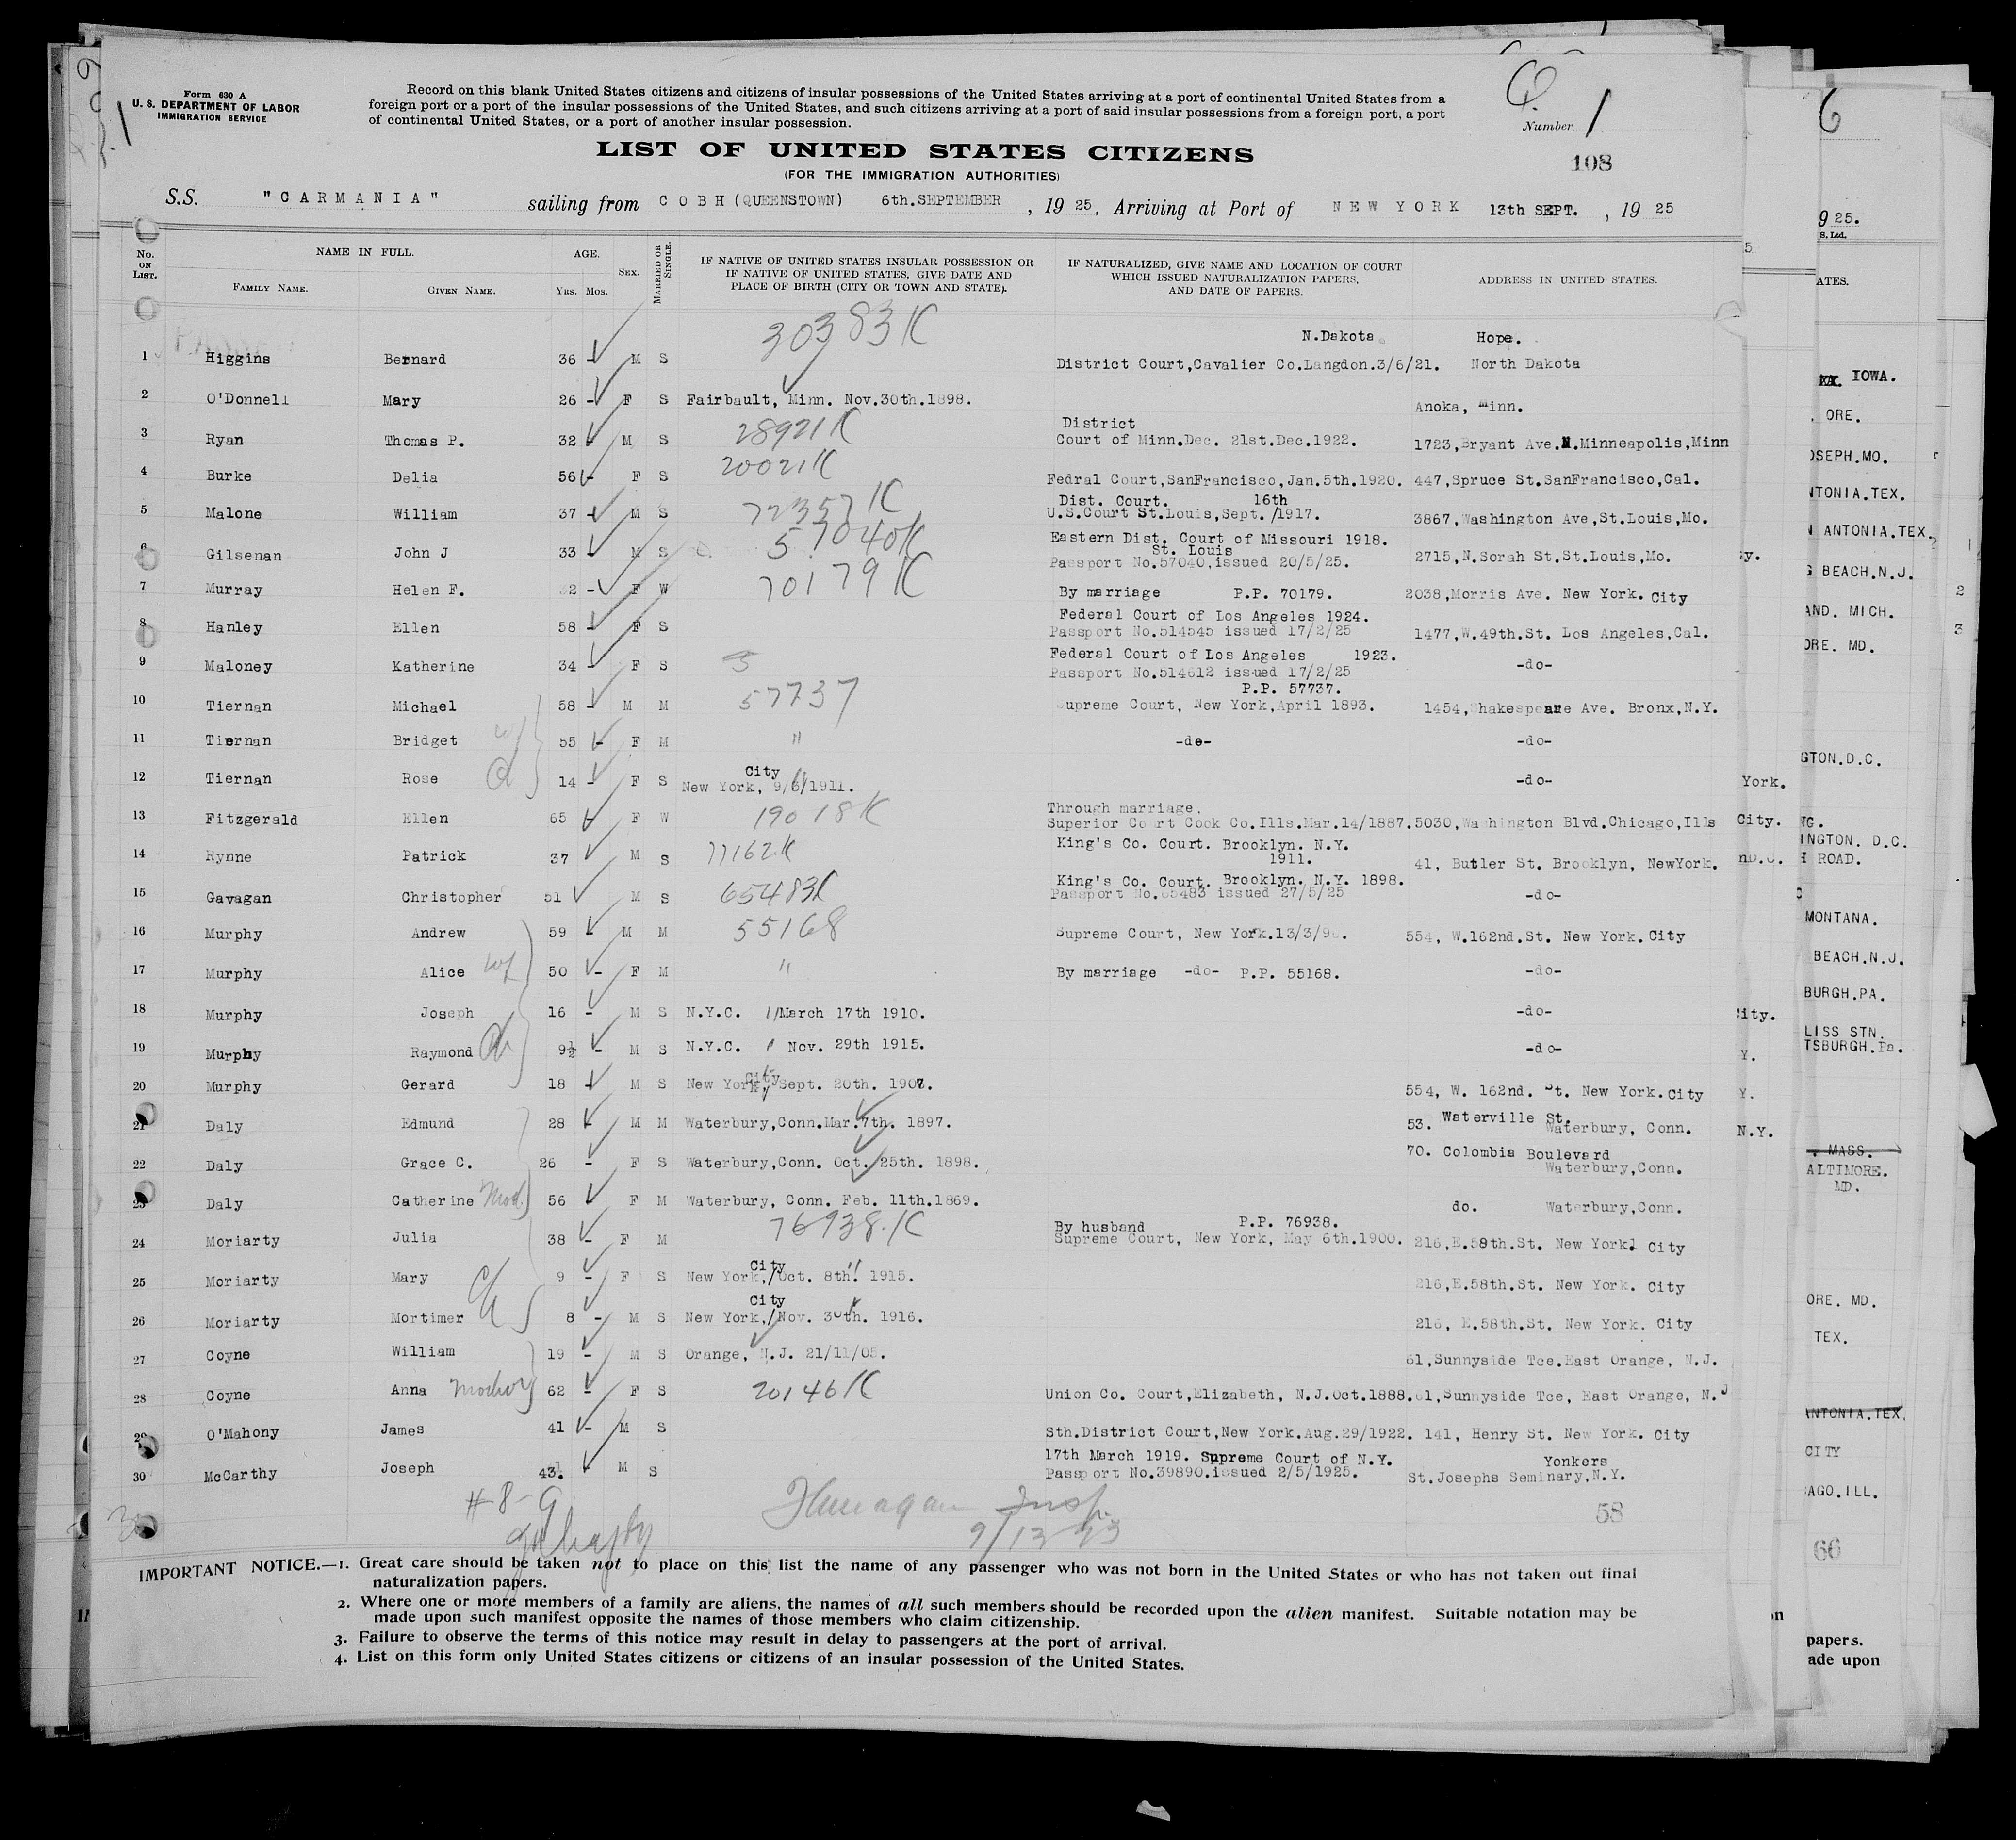 Form 630 A
U. S. DEPARTMENT OF LABOR
IMMIGRATION SERVICE
Record on this blank United States citizens and citizens of insular possessions of the United States arriving at a port of continental United States from a
foreign port or a port of the insular possessions of the United States, and such citizens arriving at a port of said insular possessions from a foreign port, a port
of continental United States, or a port of another insular possession.
Number 1
LIST OF UNITED STATES CITIZENS
(FOR THE IMMIGRATION AUTHORITIES)
108
S.S. "CARMANIA" sailing from COBH (QUEENSTOWN) 6th.SEPTEMBER , 19 25, Arriving at Port of NEW YORK 13th SEPT. , 19 25
No. ON LIST.
NAME IN FULL.
FAMILY NAME. GIVEN NAME.
AGE.
YRS. MOS.
SEX.
MARRIED OR SINGLE.
IF NATIVE OF UNITED STATES INSULAR POSSESSION OR
IF NATIVE OF UNITED STATES, GIVE DATE AND
PLACE OF BIRTH (CITY OR TOWN AND STATE).
IF NATURALIZED, GIVE NAME AND LOCATION OF COURT
WHICH ISSUED NATURALIZATION PAPERS,
AND DATE OF PAPERS.
ADDRESS IN UNITED STATES.
30383 K N.Dakota Hope.
1 Higgins Bernard 36 - M S District Court,Cavalier Co.Langdon.3/6/21. North Dakota
2 O'Donnell Mary 26 - F S Fairbault, Minn. Nov.30th.1898. Anoka, Minn.
District
3 Ryan Thomas P. 32 - M S 28921 K Court of Minn.Dec. 21st.Dec.1922. 1723,Bryant Ave.N.Minneapolis,Minn
4 Burke Delia 56 - F S 20021 K Fedral Court,SanFrancisco,Jan.5th.1920. 447,Spruce St.SanFrancisco,Cal.
Dist. Court. 16th
5 Malone William 37 - M S 72357 K U.S.Court St.Louis,Sept. /1917. 3867,Washington Ave,St.Louis,Mo.
Eastern Dist. Court of Missouri 1918.
St. Louis
6 Gilsenan John J 33 - M S 57040 K Passport No.57040,issued 20/5/25. 2715,N.Sorah St.St.Louis,Mo.
7 Murray Helen F. 32 - F W 70179 K By marriage P.P. 70179. 2038,Morris Ave. New York. City
Federal Court of Los Angeles 1924.
8 Hanley Ellen 58 - F S Passport No.514545 issued 17/2/25 1477,W.49th.St. Los Angeles,Cal.
Federal Court of Los Angeles 1923.
9 Maloney Katherine 34 - F S Passport No.514612 issued 17/2/25 -do-
P.P. 57737.
10 Tiernan Michael 58 - M M 57737 Supreme Court, New York,April 1893. 1454,Shakespeare Ave. Bronx,N.Y.
11 Tiernan Bridget 55 - F M " -do- -do-
City
12 Tiernan Rose 14 - F S New York, 9/6/1911. -do-
Through marriage.
13 Fitzgerald Ellen 65 - F W 19018 K Superior Court Cook Co.Ills.Mar.14/1887. 5030,Washington Blvd.Chicago,Ills
King's Co. Court. Brooklyn. N.Y.
14 Rynne Patrick 37 M S 77162 K 1911. 41, Butler St. Brooklyn, NewYork.
King's Co. Court. Brooklyn. N.Y. 1898.
15 Gavagan Christopher 51 M S 65483 K Passport No.65483 issued 27/5/25 -do-
16 Murphy Andrew 59 - M M 55168 Supreme Court, New York.13/3/9 . 554, W.162nd.St. New York. City
17 Murphy Alice wf 50 - F M " By marriage -do- P.P. 55168. -do-
18 Murphy Joseph 16 - M S N.Y.C. March 17th 1910. -do-
19 Murphy Raymond 9½ - M S N.Y.C. Nov. 29th 1915. -do-
20 Murphy Gerard 18 - M S New York, City Sept. 20th. 1907. 554, W. 162nd. St. New York. City
21 Daly Edmund 28 - M M Waterbury,Conn.Mar.7th. 1897. 53. Waterville St.
Waterbury, Conn.
22 Daly Grace C. 26 - F S Waterbury,Conn. Oct. 25th. 1898. 70. Colombia Boulevard
Waterbury,Conn.
23 Daly Catherine 56 F M Waterbury, Conn. Feb. 11th.1869. do. Waterbury,Conn.
By husband P.P. 76938.
24 Moriarty Julia 38 - F M 76938 K Supreme Court, New York, May 6th.1900. 216,E.58th.St. New York. City
City
25 Moriarty Mary 9 - F S New York,/Oct. 8th. 1915. 216,E.58th.St. New York. City
City
26 Moriarty Mortimer 8 - M S New York,/Nov. 30th. 1916. 216, E.58th.St. New York. City
27 Coyne William 19 - M S Orange, N.J. 21/11/05. 61,Sunnyside Tce.East Orange, N.J.
28 Coyne Anna Mother 62 - F S 20146 K Union Co. Court,Elizabeth, N.J.Oct.1888. 61,Sunnyside Tce, East Orange, N.J
29 O'Mahony James 41 - M S Sth.District Court,New York.Aug.29/1922. 141, Henry St. New York. City
17th March 1919. Supreme Court of N.Y. Yonkers
30 McCarthy Joseph 43. - M S Passport No.39890.issued 2/5/1925. St.Josephs Seminary,N.Y.
# 8-9
Insp.
58
IMPORTANT NOTICE.—1. Great care should be taken not to place on this list the name of any passenger who was not born in the United States or who has not taken out final
naturalization papers.
2. Where one or more members of a family are aliens, the names of all such members should be recorded upon the alien manifest. Suitable notation may be
made upon such manifest opposite the names of those members who claim citizenship.
3. Failure to observe the terms of this notice may result in delay to passengers at the port of arrival.
4. List on this form only United States citizens or citizens of an insular possession of the United States.
6
9 25.
S. Ltd.
ATES.
IOWA.
ORE.
OSEPH.MO.
NTONIA.TEX.
N ANTONIA.TEX.
BEACH.N.J.
AND. MICH.
ORE. MD.
GTON.D.C.
York.
City.
INGTON. D.C.
H ROAD.
MONTANA.
BEACH.N.J.
BURGH.PA.
LISS STN.
TSBURGH.Pa.
N.Y.
MASS.
ALTIMORE.
MD.
ORE. MD.
TEX.
ANTONIA.TEX.
CITY
AGO.ILL.
66
papers.
ade upon